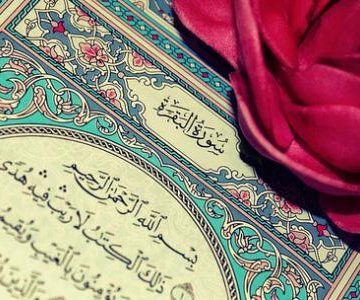 سُورَةُ البَقَرَةِ
بِسْمِ اللَّهِ الرَّحْمَٰنِ الرَّحِيمِ
ذَٰلِكَ الْكِتَابُ لَا رَيْبَ فِيهِ هُدًى
بِالْغَيْبِ